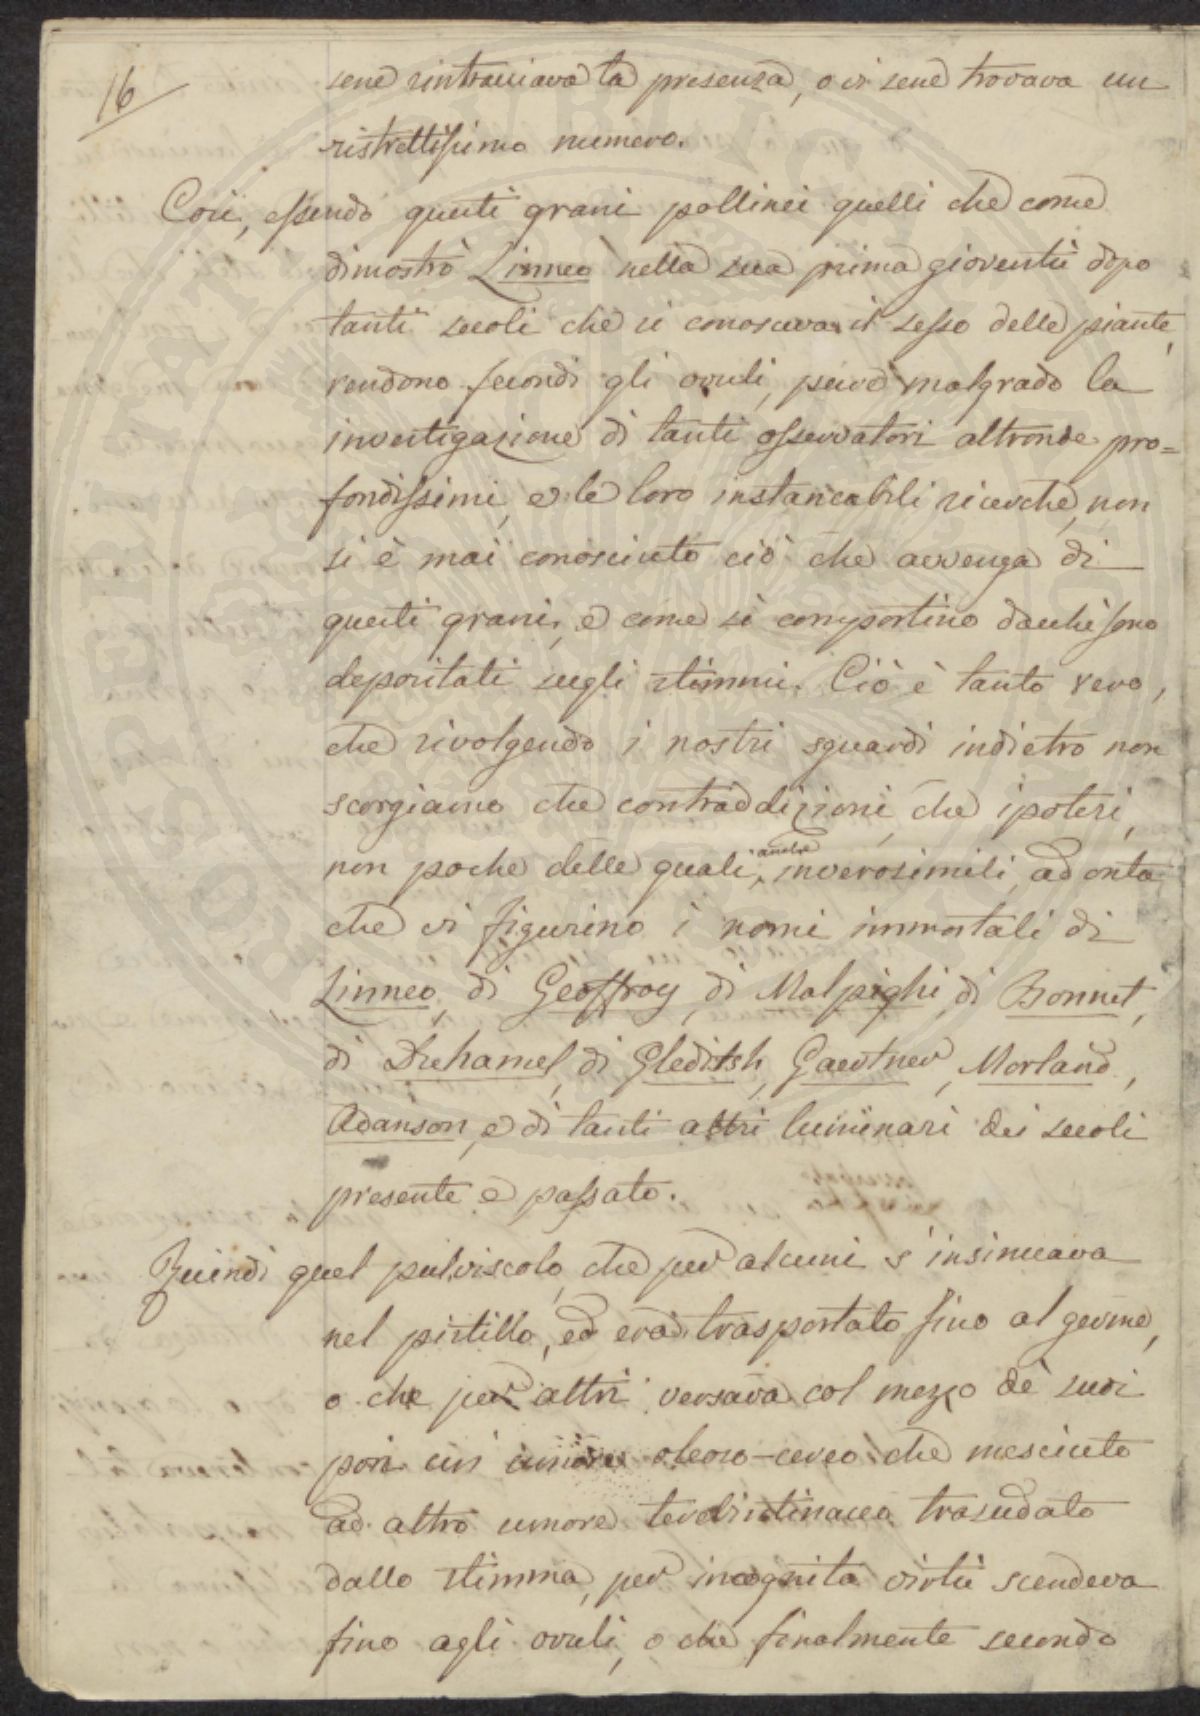 16
sene rintracciava la presenza, o vi sene trovava un
ristrettissimo numero.
Così, essendo questi grani pollinei quelli che come
dimostrò Linneo nella sua prima gioventù dopo
tanti secoli che si conosceva il sesso delle piante,
rendono fecondi gli ovuli, pure malgrado la
investigazione di tanti osservatori altronde pro=
fondissimi, e le loro instancabili ricerche, non
si è mai conosciuto ciò che avvenga di
questi grani, e come si comportino dacchè sono
depositati sugli stimmi. Ciò è tanto vero,
che rivolgendo i nostri sguardi indietro non
scorgiamo che contraddizioni, che ipotesi,
non poche delle quali, anche inverosimili, ad onta
che vi figurino i nomi immortali di
Linneo, di Geoffroy, di Malpighi, di Bonnet,
di Duhamel, di Gleditsh, Gaertner, Morland,
Adanson, e di tanti altri luminari dei secoli
presente e passato.
Quindi quel pulviscolo, che per alcuni s'insinuava
nel pistillo, ed era trasportato fino al germe,
o che per altri versava col mezzo de' suoi
pori un umore oleoso-cereo che mesciuto
ad altro umore terebintinaceo trasudato
dallo stimma, per incognita virtù scendeva
fino agli ovuli, o che finalmente secondo